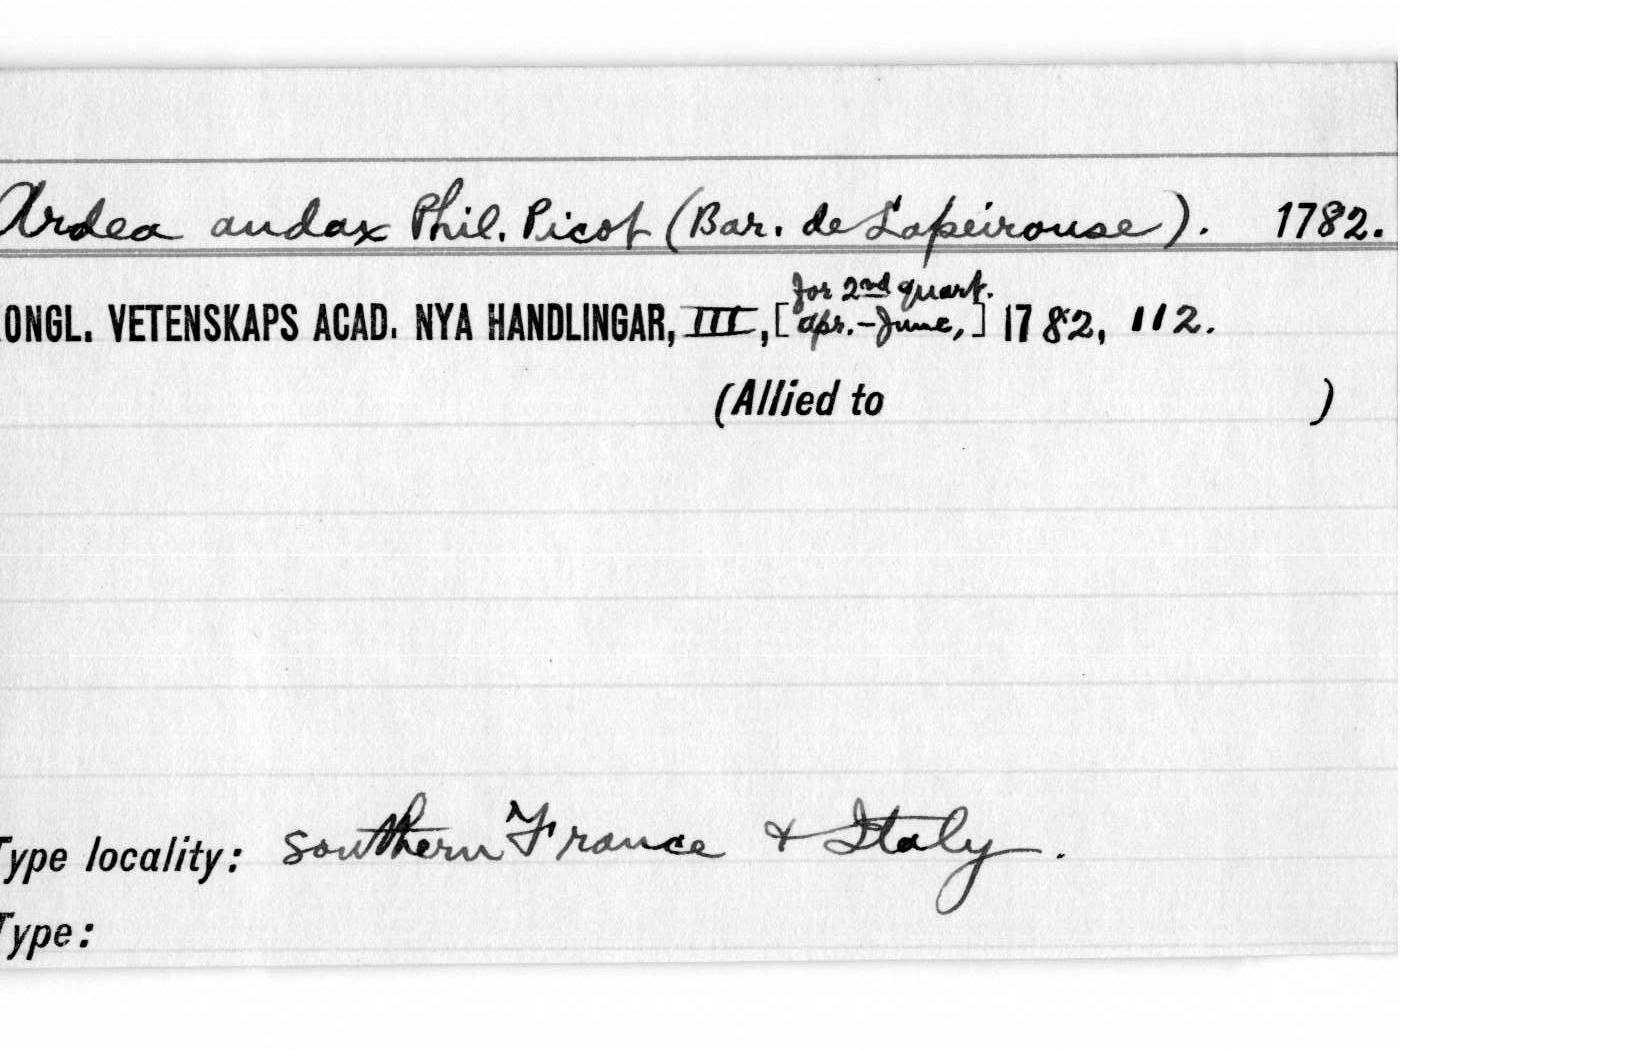 Ardea audax Phil. Picot (Bar. de Lapeirouse). 1782.
ONGL. VETENSKAPS ACAD. NYA HANDLINGAR, III, [for 2nd quart. Apr.-June,] 1782, 112.
(Allied to )
Type locality: Southern France & Italy.
Type: